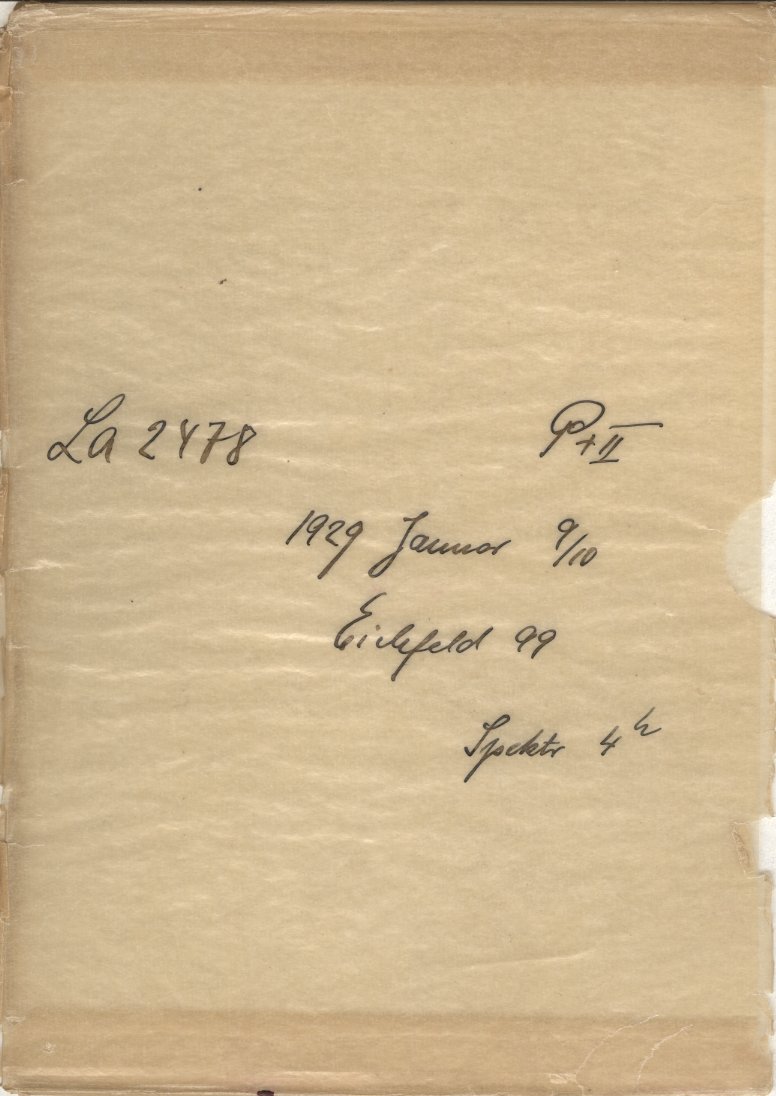 La 2478 P+II
1929 Januar 9/10
Eichfeld 99
Spektr 4h